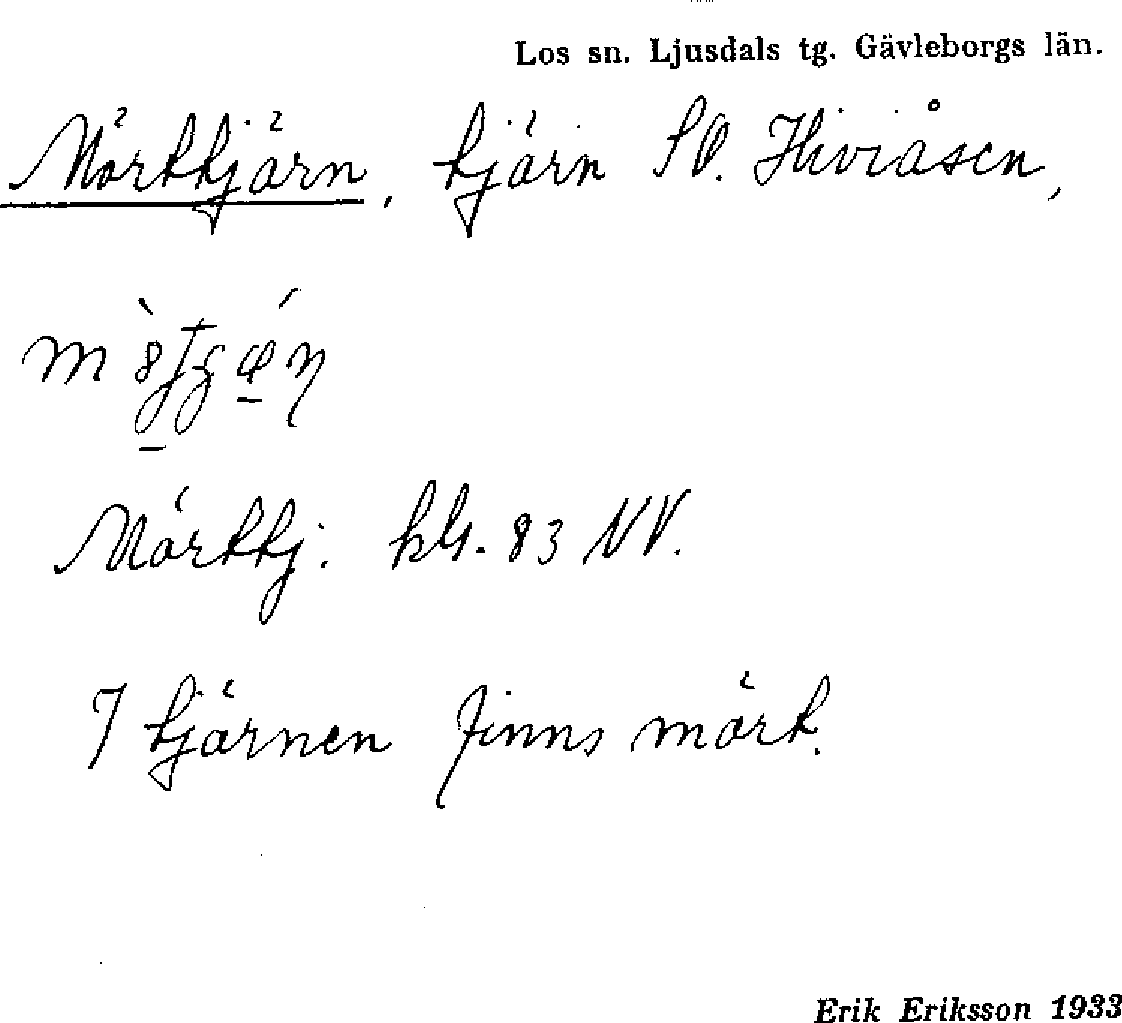 Los sn. Ljusdals tg. Gävleborgs län.
Mörttjärn, tjärn SO. Hiviåsen,
Mörttj. bl. 83 NV.
I tjärnen finns mört.
Erik Eriksson 1933